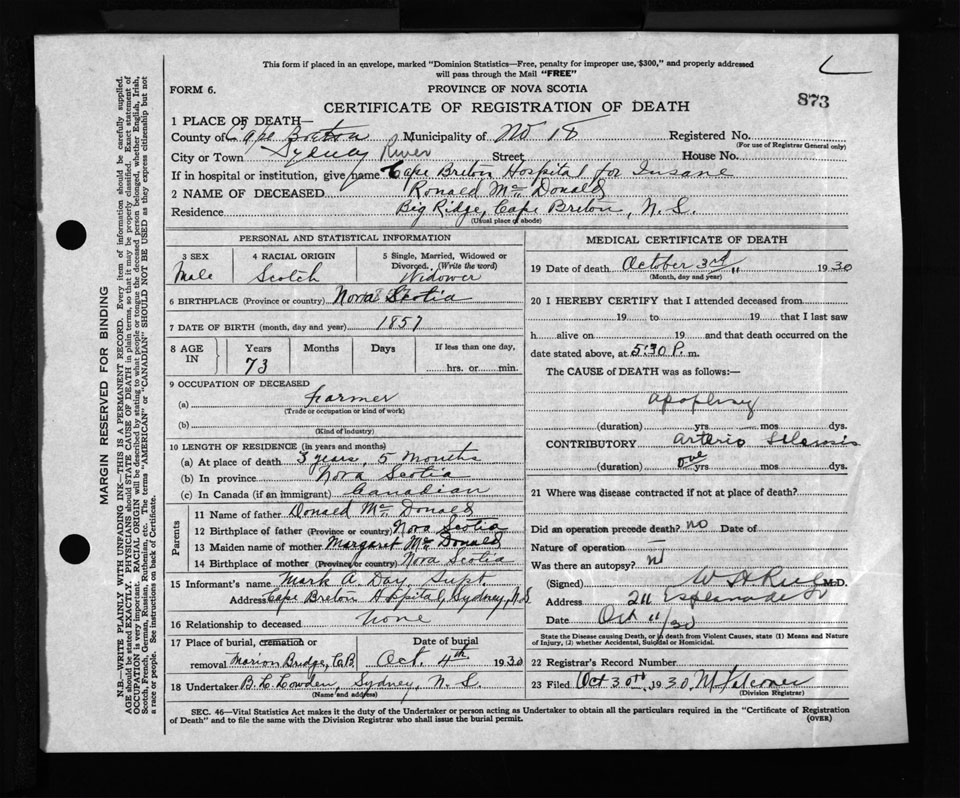 This form if placed in an envelope, marked "Dominion Statistics—Free, penalty for improper use, $300," and properly addressed
will pass through the Mail "FREE"
FORM 6.
PROVINCE OF NOVA SCOTIA
CERTIFICATE OF REGISTRATION OF DEATH
873
1 PLACE OF DEATH—
County of Cape Breton Municipality of No 18 Registered No.
(For use of Registrar General only)
City or Town Sydney River Street House No.
If in hospital or institution, give name Cape Breton Hospital for Insane
2 NAME OF DECEASED Ronald McDonald
Residence Big Ridge, Cape Breton, N.S.
(Usual place of abode)
PERSONAL AND STATISTICAL INFORMATION
3 SEX Male
4 RACIAL ORIGIN Scotch
5 Single, Married, Widowed or Divorced. (Write the word) Widower
6 BIRTHPLACE (Province or country) Nova Scotia
7 DATE OF BIRTH (month, day and year) 1857
8 AGE IN Years Months Days If less than one day,
73 hrs. or min.
9 OCCUPATION OF DECEASED
(a) farmer
(Trade or occupation or kind of work)
(b)
(Kind of industry)
10 LENGTH OF RESIDENCE (in years and months)
(a) At place of death 3 years, 5 months
(b) In province Nova Scotia
(c) In Canada (if an immigrant) Canadian
Parents
11 Name of father Donald McDonald
12 Birthplace of father (Province or country) Nova Scotia
13 Maiden name of mother Margaret McDonald
14 Birthplace of mother (Province or country) Nova Scotia
15 Informant's name Mark A. Day, Supt
Address Cape Breton Hospital, Sydney, N.S.
16 Relationship to deceased none
17 Place of burial, cremation or Date of burial
removal Marion Bridge, C.B. Oct. 4th 1930
18 Undertaker B. L. Lowden, Sydney, N.S.
(Name and address)
MEDICAL CERTIFICATE OF DEATH
19 Date of death October 3rd " 1930
(Month, day and year)
20 I HEREBY CERTIFY that I attended deceased from
19 to 19 that I last saw
h alive on 19 and that death occurred on the
date stated above, at 5:30 P. m.
The CAUSE of DEATH was as follows:—
apoplexy
(duration) yrs. mos. dys.
CONTRIBUTORY Arterio Sclerosis
(duration) one yrs. mos. dys.
21 Where was disease contracted if not at place of death?
Did an operation precede death? no Date of
Nature of operation —
Was there an autopsy? no
(Signed) W H M.D.
Address 211 Esplanade
Date Oct 11/30
State the Disease causing Death, or in death from Violent Causes, state (1) Means and Nature
of Injury, (2) whether Accidental, Suicidal or Homicidal.
22 Registrar's Record Number
23 Filed Oct 30th 1930, M Falconer
(Division Registrar)
SEC. 46—Vital Statistics Act makes it the duty of the Undertaker or person acting as Undertaker to obtain all the particulars required in the "Certificate of Registration
of Death" and to file the same with the Division Registrar who shall issue the burial permit.
(OVER)
MARGIN RESERVED FOR BINDING
N.B.—WRITE PLAINLY WITH UNFADING INK—THIS IS A PERMANENT RECORD. Every item of information should be carefully supplied.
AGE should be stated EXACTLY. PHYSICIANS should STATE CAUSE OF DEATH in plain terms, so that it may be properly classified. Exact statement of
OCCUPATION is very important. RACIAL ORIGIN will be described by stating to what people or tongue the deceased person belonged, whether English, Irish,
Scotch, French, German, Russian, Ruthenian, etc. The terms "AMERICAN" or "CANADIAN" SHOULD NOT BE USED as they express citizenship but not
a race or people. See instructions on back of Certificate.